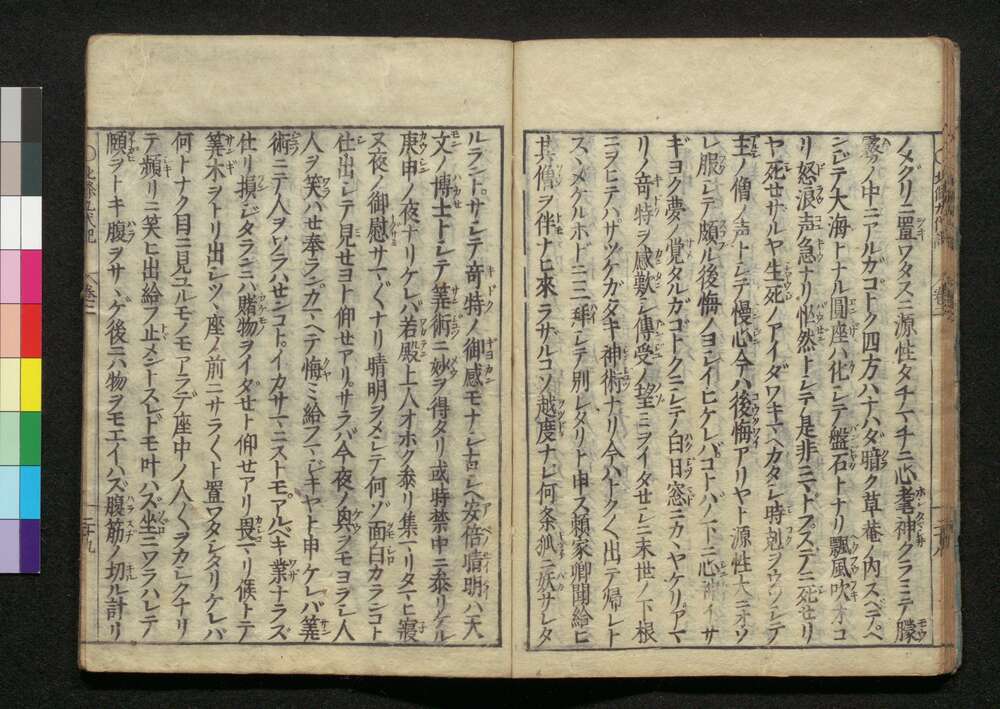 ノメグリニ置ワタスニ源性タチマチニ心耄神クラミテ朦
霧ノ中ニアルガコトク四方ハナハダ暗ク草庵ノ内スベテヘ
シビテ大海トナル圓座ハ化シテ盤石トナリ飄風吹オコ
リ怒浪声急ナリ惘然トシテ是非ニマドフステニ死セリ
ヤ死セサルヤ生死ノアイダワキマヘカタシ時剋ヲウツシテ
主ノ僧ノ声トシテ慢心今ハ後悔アリヤト源性大ニオソ
レ服シテ頗ル後悔ノヨシイヒケレバコトバノ下ニ心神イサ
ギヨク夢ノ覚タルガコトクニシテ白日窓ニカヽヤケリアマ
リノ奇特ヲ感歎シ傳受ノ望ミヲイタセシニ末世ノ下根
ニヲヒテハサヅケガタキ神術ナリ今ハトクく出テ帰レト
スヽメケルホドニ三拜シテ別レタリト申ス頼家卿聞給ヒ
其僧ヲ伴ナヒ來ラサルコソ越度ナレ何条狐ニ妖サレタ
北條九代記
巻二
二十八
ルラントサシテ奇特ノ御感モナシ古シヘ安倍晴明ハ天
文ノ博士トシテ筭術ニ妙ヲ得タリ或時禁中ニ参リケル
庚申ノ夜ナリケレバ若殿上人オホク参リ集マリタマヒ寢
又夜ノ御慰サマぐナリ晴明ヲメシテ何ソ面白カランコト
仕出シテ見セヨト仰セアリサラバ今夜ノ興ヲモヨヲシ人
人ヲ笑ハセ奉ランカマヘテ悔ミ給フマジキヤト申ケレバ筭
術ニテ人ヲワラハセンコトイカサマニストモアルベキ業ナラズ
仕リ損ジタランニハ賭物ヲイダセト仰セアリ畏マリ候トテ
筭木ヲトリ出シツヽ座ノ前ニサラくト置ワタシタリケレバ
何トナク目ニ見ユルモノモアラデ座中ノ人くヲカシクナリ
テ頻リニ笑ヒ出給フ止メントスレドモ叶ハズ坐ニワラハレテ
頤ヲトキ腹ヲサヽゲ後ニハ物ヲモエイハズ腹筋ノ切ル計リ
北條九代記
巻二
二十九